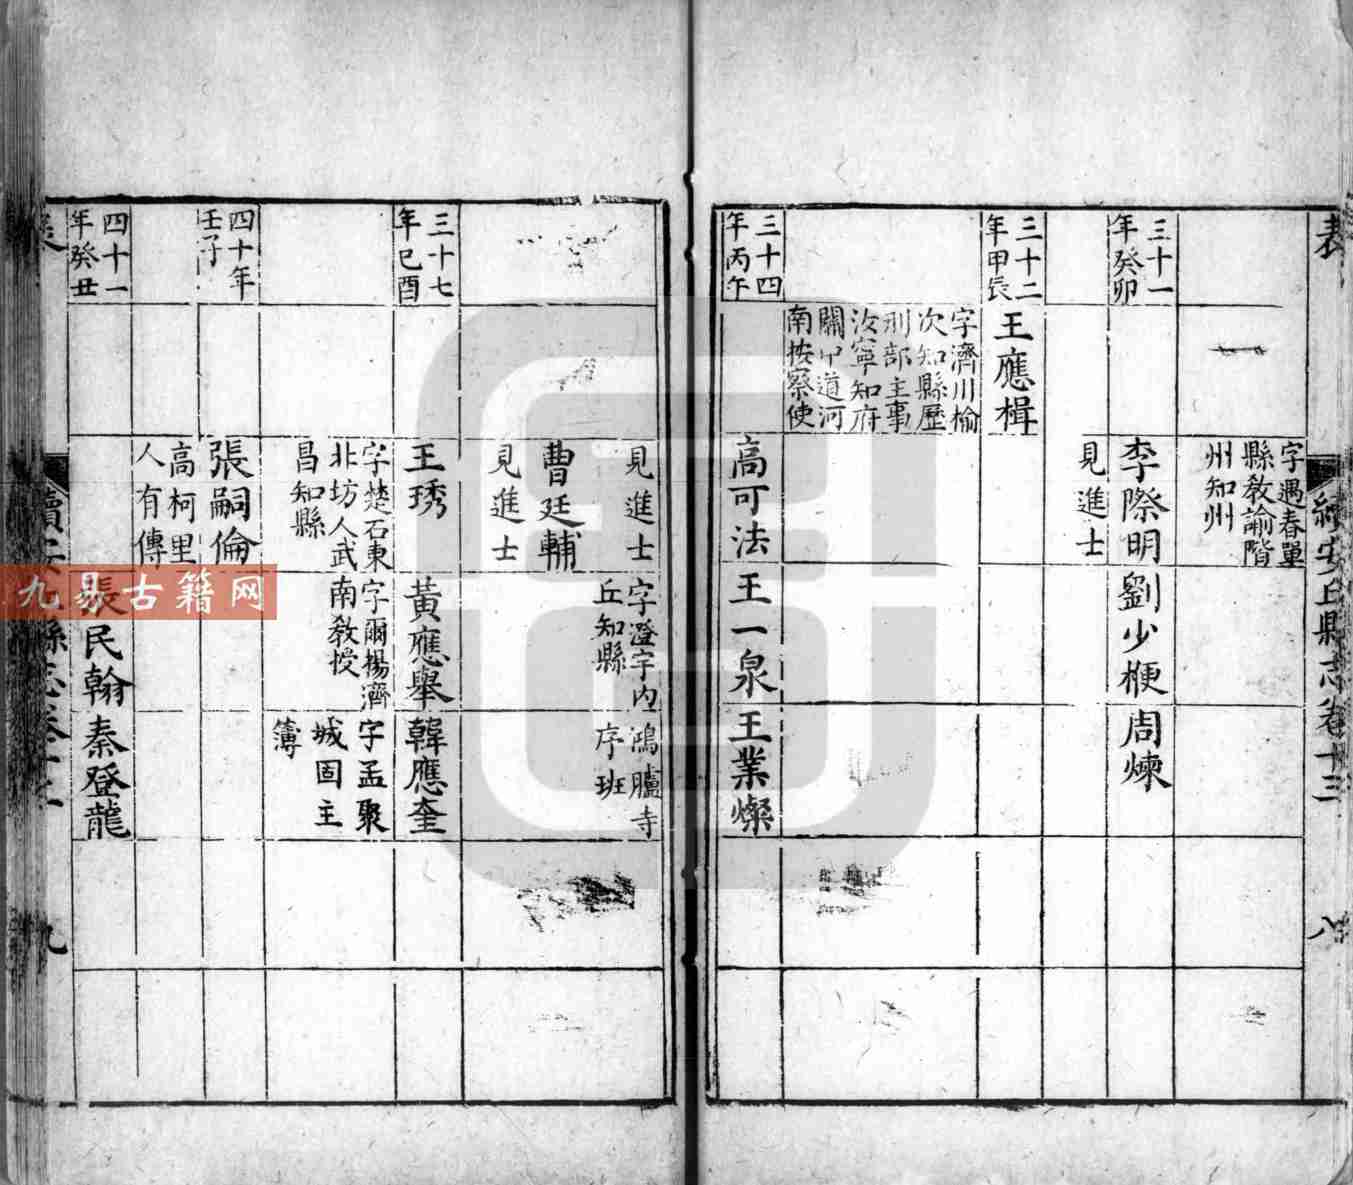 表
續安丘縣志卷十三
八
字遇春單
縣敎諭階
州知州
三十一
年癸卯
李際明
劉少梗
周煉
見進士
三十二
年甲辰
王應楫
字濟川榆
次知縣歷
刑部主事
汝寧知府
關中道河
南按察使
三十四
年丙午
高可法
王一泉
王業燦
見進士
字澄宇內
丘知縣
鴻臚寺
序班
曹廷輔
見進士
三十七
年己酉
王琇
黃應舉
韓應奎
字楚石東
北坊人武
昌知縣
字爾揚濟
南敎授
字孟聚
城固主
簿
四十年
壬子
張嗣倫
高柯里
人有傳
四十一
年癸丑
張民翰
秦登龍
九
九易古籍网